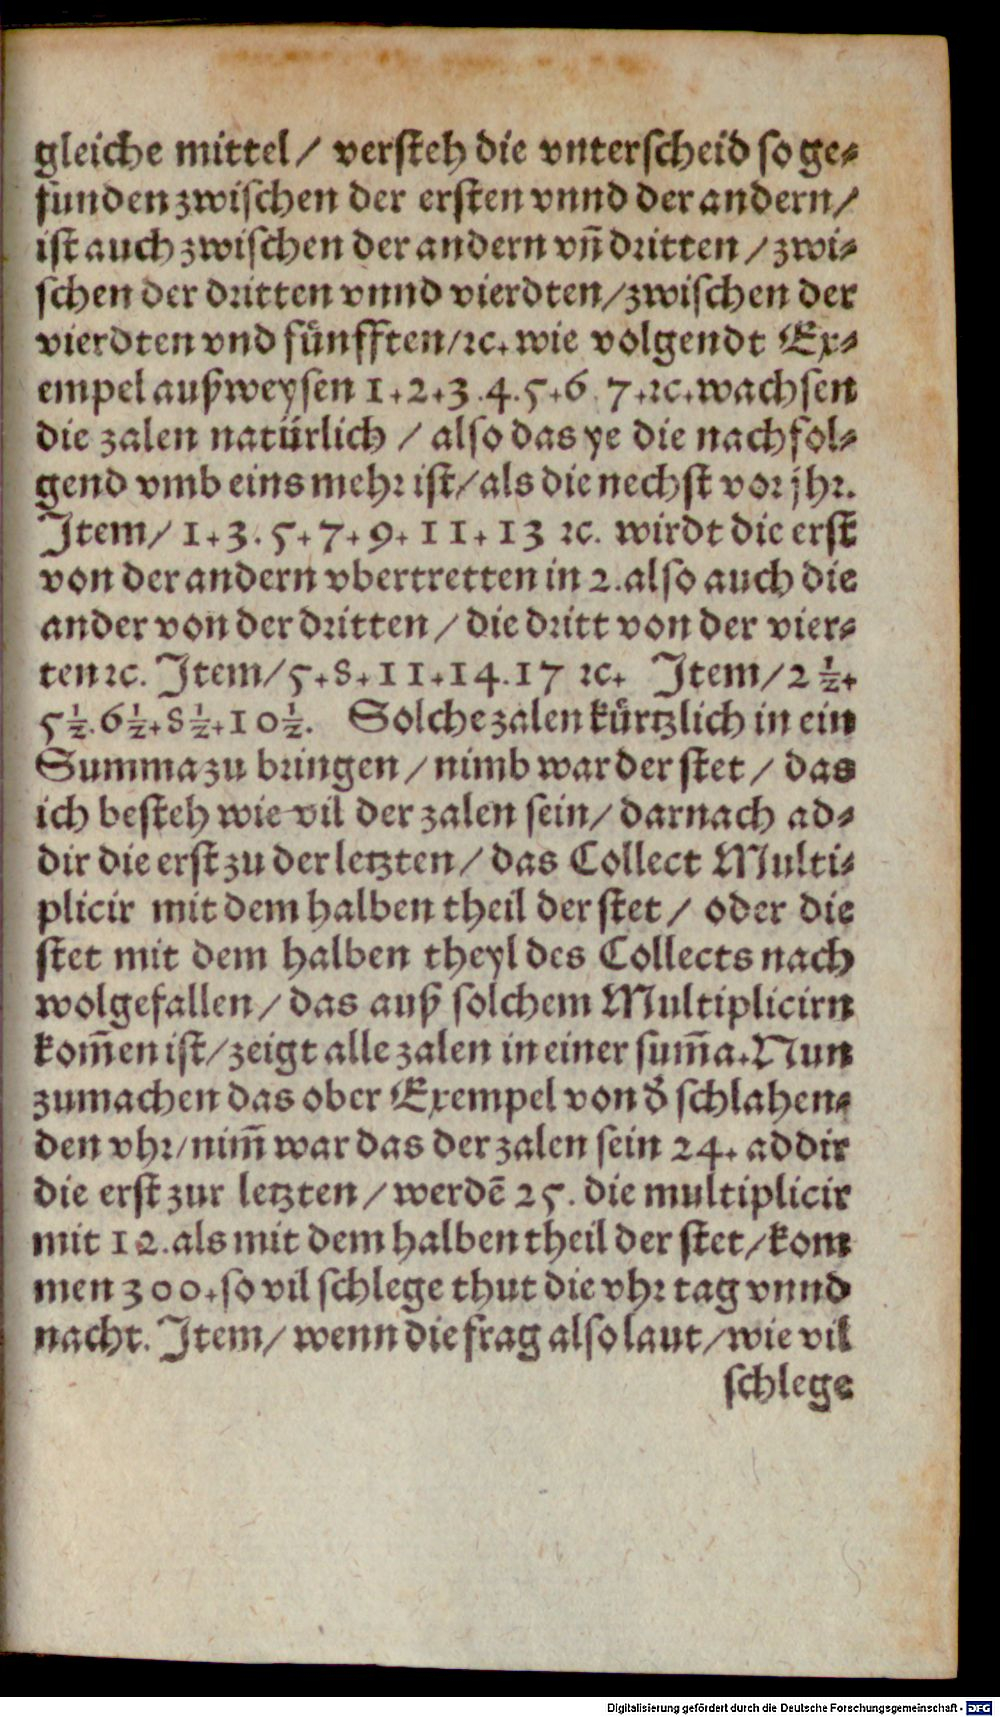 gleiche mittel / versteh die vnterscheid so ge-
funden zwischen der ersten vnnd der andern /
ist auch zwischen der andern vn̄ dritten / zwi-
schen der dritten vnnd vierdten / zwischen der
vierdten vnd fünfften / ꝛc. wie volgendt Ex-
empel außweysen 1.2.3.4.5.6.7.ꝛc. wachsen
die zalen natürlich / also das ye die nachfol-
gend vmb eins mehr ist / als die nechst vor jhr.
Item / 1.3.5.7.9.11.13 ꝛc. wirdt die erst
von der andern vbertretten in 2. also auch die
ander von der dritten / die dritt von der vier-
ten ꝛc. Item / 5.8.11.14.17 ꝛc. Item / 2 ½.
5 ½. 6 ½. 8 ½. 10 ½. Solche zalen kürtzlich in ein
Summa zu bringen / nimb war der stet / das
ich besteh wie vil der zalen sein / darnach ad-
dir die erst zu der letzten / das Collect Multi-
plicir mit dem halben theil der stet / oder die
stet mit dem halben theyl des Collects nach
wolgefallen / das auß solchem Multiplicirn
kom̄en ist / zeigt alle zalen in einer sum̄a. Nun
zumachen das ober Exempel von d̾ schlahen-
den vhr / nim̄ war das der zalen sein 24. addir
die erst zur letzten / werdē 25. die multiplicir
mit 12. als mit dem halben theil der stet / kom
men 300. so vil schlege thut die vhr tag vnnd
nacht. Item / wenn die frag also laut / wie vil
schlege
Digitalisierung gefördert durch die Deutsche Forschungsgemeinschaft - DFG